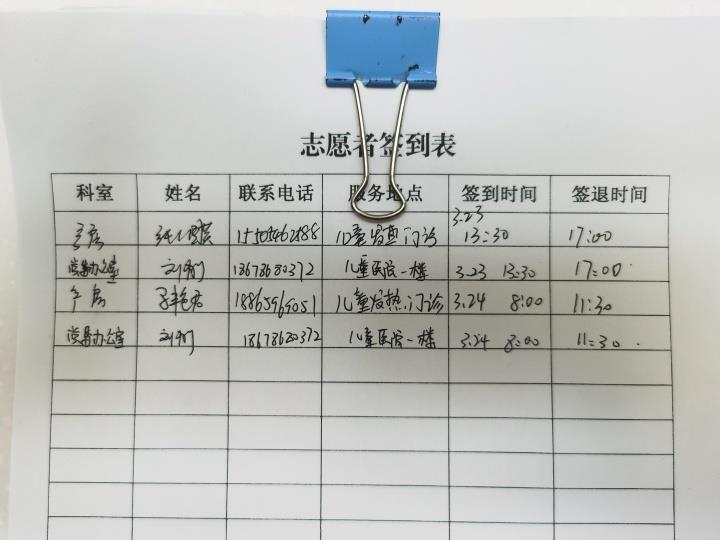 志愿者签到表
科室 姓名 联系电话 服务地点 签到时间 签退时间
产房 儿童发热门诊 3.23 13:30 17:00
党群办公室 刘 18678620372 儿童医院一楼 3.23 13:30 17:00
产房 18865969051 儿童发热门诊 3.24 8:00 11:30
党群办公室 刘 18678620372 儿童医院一楼 3.24 8:00 11:30